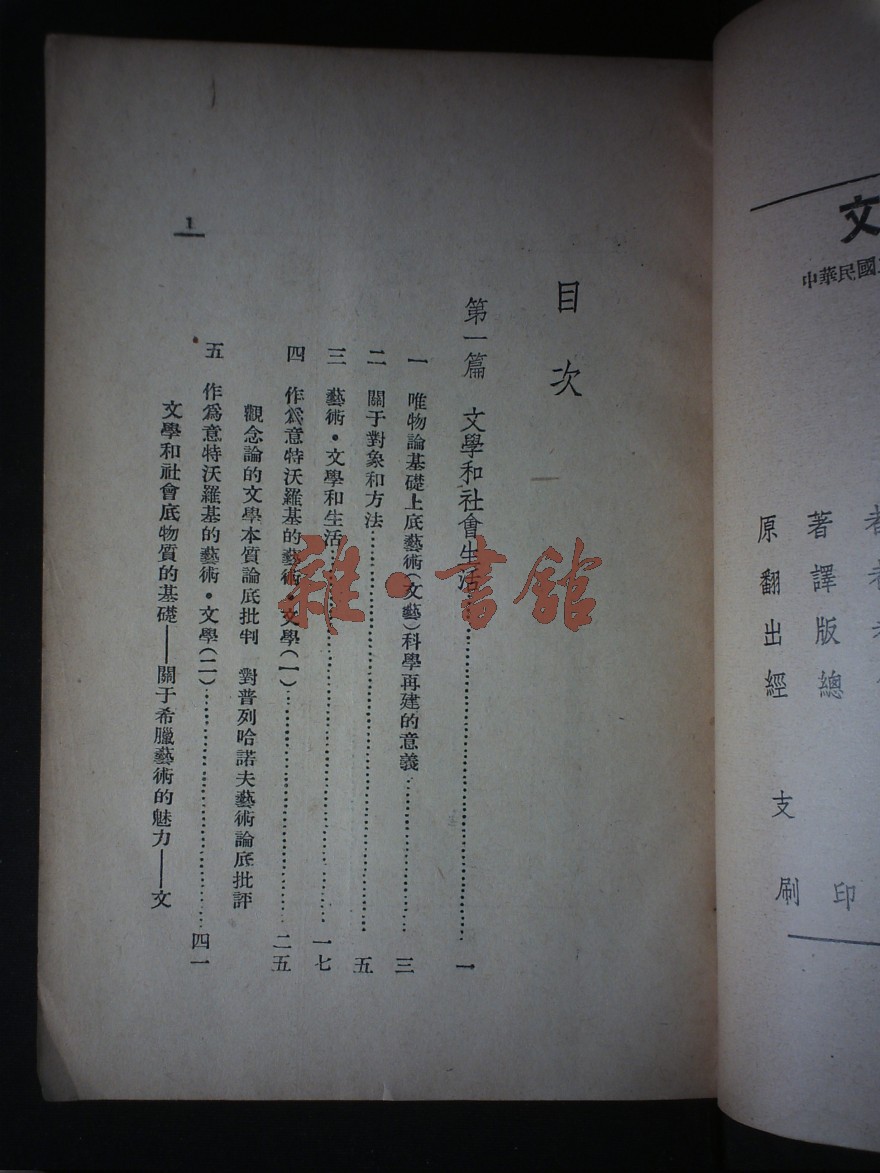 文
中華民國
者
者
著譯版總
印
原翻出經
支
刷
目次
第一篇 文學和社會生活……一
一 唯物論基礎上底藝術(文藝)科學再建的意義……三
二 關于對象和方法……五
三 藝術·文學和生活……一七
四 作爲意特沃羅基的藝術·文學(一)……二五
觀念論的文學本質論底批判 對普列哈諾夫藝術論底批評
五 作爲意特沃羅基的藝術·文學(二)……四一
文學和社會底物質的基礎——關于希臘藝術的魅力——文
1
雜·書館